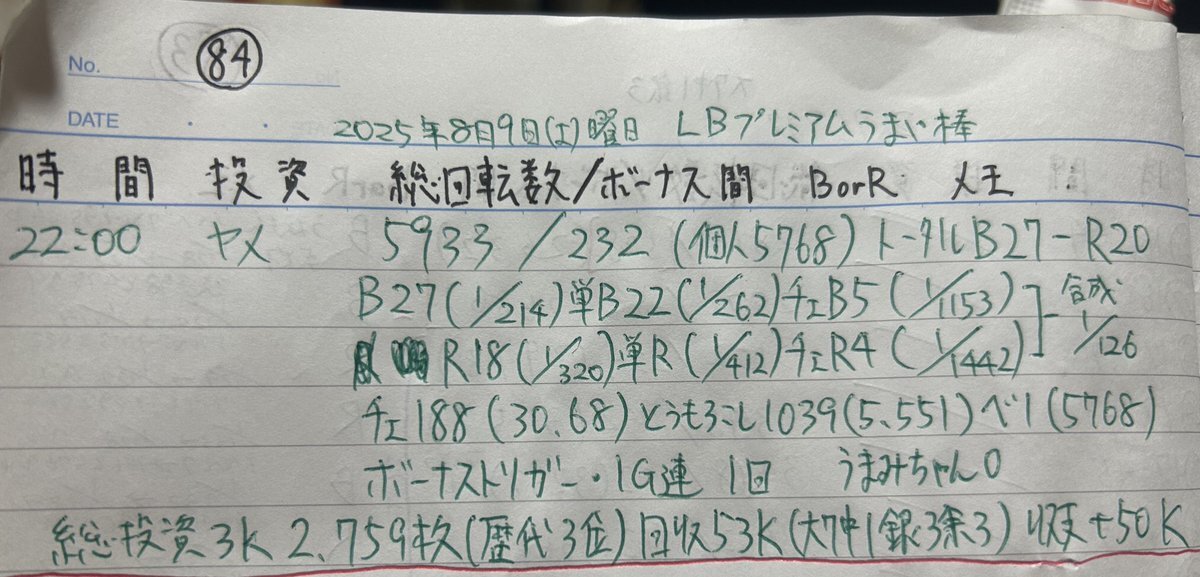 No. 84
DATE ・ ・ 2025年8月9日(土)曜日 LBプレミアムうまい棒
時間 投資 総回転数/ボーナス間 BorR メモ
22:00 ヤメ 5933/232 (個人5768) トータルB27-R20
B27(1/214)単B22(1/262)チェB5(1/1153)
R18(1/320)単R(1/412)チェR4(1/1442)
合成 1/126
チェ188(30.68)とうもろこし1039(5.551)ベ1(5768)
ボーナストリガー・1G連 1回 うまみちゃん0
総投資3K 2,759枚(歴代3位)回収53K(大7中1銀3余3)収支+50K